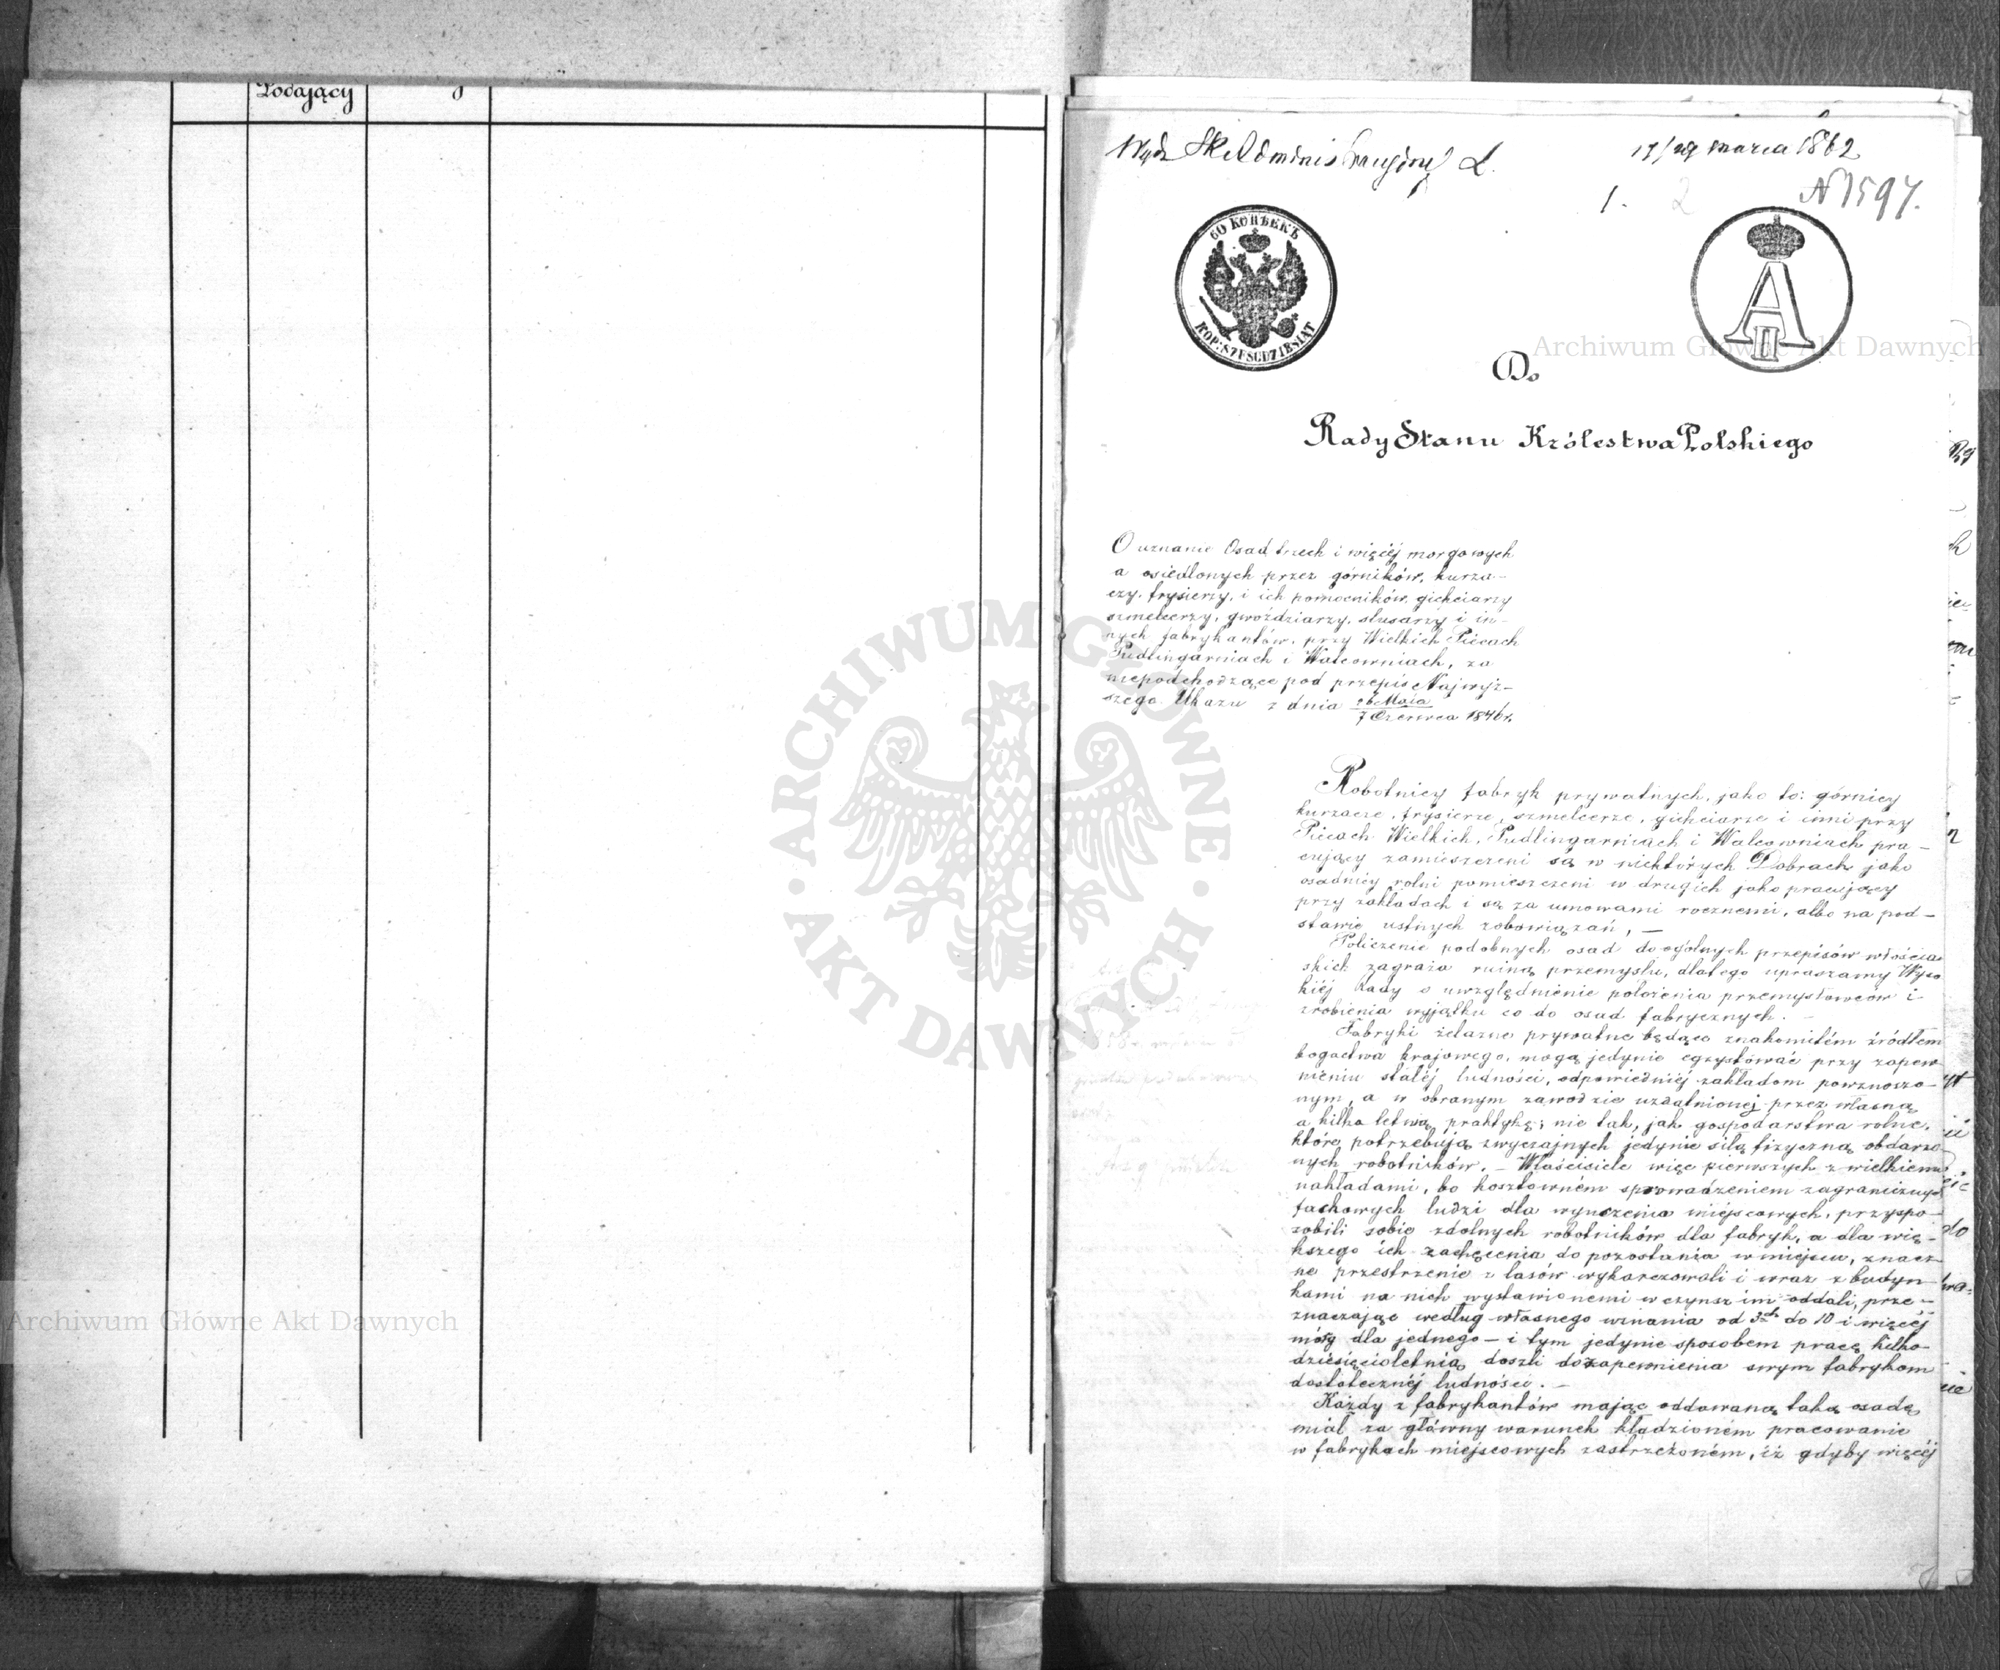 Podający
Wydz Sk Administracyjny
17/29 marca 1862
1. 2 N 1597.
60 КОПѢЕКЪ
KOP: SZESĆDZIESIĄT
A II
Do
Rady Stanu Królestwa Polskiego
O uznanie Osad trzech i więcéj morgowych
a osiedlonych przez górników, kurza-
czy, frysierzy, i ich pomocników, gichciarzy
szmelcerzy, gwoździarzy, slusarzy i in-
nych fabrykantów, przy Wielkich Piecach
Pudlingarniach i Walcowniach, za
niepodchodzące pod przepis Najwyż-
szego Ukazu z dnia 26 Maia
7 Czerwca 1846 r.
Robotnicy fabryk prywatnych, jako to: górnicy
kurzacze, frysierze, szmelcerze, gichciarze i inni przy
Piecach Wielkich, Pudlingarniach i Walcowniach pra-
cujący zamieszczeni są w niektórych Dobrach jako
osadnicy rolni pomieszczeni w drugich jako pracujący
przy zakładach i są za umowami rocznemi, albo na pod-
stawie ustnych zobowiązań, —
Policzenie podobnych osad do ogólnych przepisów włościa
skich zagraża ruiną przemysłu, dlatego upraszamy Wyso
kiéj Rady o uwzględnienie położenia przemysłowców i
zrobienia wyjątku co do osad fabrycznych. —
Fabryki żelazne prywatne będąc znakomitém źródłem
bogactwa krajowego, mogą jedynie egzystować przy zapew
nieniu stałéj ludności, odpowiedniéj zakładom powznoszo-
nym, a w obranym zawodzie uzdalnionéj przez własną
a kilko letnią praktykę; nie tak, jak gospodarstwa rolne,
które potrzebują zwyczajnych jedynie siłą fizyczną obdarzo
nych robotników. — Właściciele więc pierwszych z wielkiemi
nakładami, bo kosztowném sprowadzeniem zagranicznych
fachowych ludzi dla wyuczenia miejscowych, przyspo-
sobili sobie zdolnych robotników dla fabryk, a dla wię-
kszego ich zachęcenia do pozostania w miejscu, znacz
ne przestrzenie z lasów wykarczowali i wraz z budyn
kami na nich wystawionemi w czynsz im oddali, prze-
znaczając według własnego uznania od 3ch do 10 i więcéj
mórg dla jednego — i tym jedynie sposobem pracą kilko-
dziesięcioletnią doszli do zapewnienia swym fabrykom
dostatecznéj ludności. —
Każdy z fabrykantów mając oddawaną taką osadę
miał za główny warunek kładzioném pracowanie
w fabrykach miejscowych zastrzeżoném, iż gdyby więcéj
ARCHIWUM GŁÓWNE
AKT DAWNYCH
Archiwum Główne Akt Dawnych
Archiwum Główne Akt Dawnych